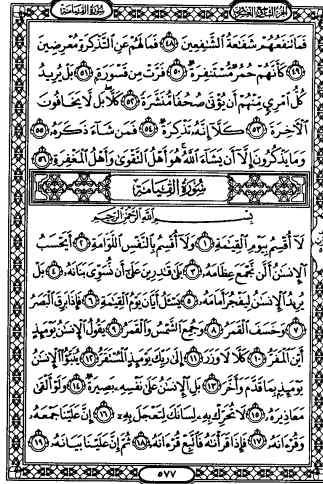 سورة القيامة الجزء التاسع والعشرون
فَمَا تَنفَعُهُمْ شَفَٰعَةُ ٱلشَّٰفِعِينَ ٤٨ فَمَا لَهُمْ عَنِ ٱلتَّذْكِرَةِ مُعْرِضِينَ
٤٩ كَأَنَّهُمْ حُمُرٌ مُّسْتَنفِرَةٌ ٥٠ فَرَّتْ مِن قَسْوَرَةٍۭ ٥١ بَلْ يُرِيدُ
كُلُّ ٱمْرِئٍ مِّنْهُمْ أَن يُؤْتَىٰ صُحُفًا مُّنَشَّرَةً ٥٢ كَلَّا ۖ بَل لَّا يَخَافُونَ
ٱلْءَاخِرَةَ ٥٣ كَلَّآ إِنَّهُۥ تَذْكِرَةٌ ٥٤ فَمَن شَآءَ ذَكَرَهُۥ ٥٥
وَمَا يَذْكُرُونَ إِلَّآ أَن يَشَآءَ ٱللَّهُ ۚ هُوَ أَهْلُ ٱلتَّقْوَىٰ وَأَهْلُ ٱلْمَغْفِرَةِ ٥٦
سُورَةُ القِيَامَةِ
بِسْمِ ٱللَّهِ ٱلرَّحْمَٰنِ ٱلرَّحِيمِ
لَآ أُقْسِمُ بِيَوْمِ ٱلْقِيَٰمَةِ ١ وَلَآ أُقْسِمُ بِٱلنَّفْسِ ٱللَّوَّامَةِ ٢ أَيَحْسَبُ
ٱلْإِنسَٰنُ أَلَّن نَّجْمَعَ عِظَامَهُۥ ٣ بَلَىٰ قَٰدِرِينَ عَلَىٰٓ أَن نُّسَوِّىَ بَنَانَهُۥ ٤ بَلْ
يُرِيدُ ٱلْإِنسَٰنُ لِيَفْجُرَ أَمَامَهُۥ ٥ يَسْـَٔلُ أَيَّانَ يَوْمُ ٱلْقِيَٰمَةِ ٦ فَإِذَا بَرِقَ ٱلْبَصَرُ
٧ وَخَسَفَ ٱلْقَمَرُ ٨ وَجُمِعَ ٱلشَّمْسُ وَٱلْقَمَرُ ٩ يَقُولُ ٱلْإِنسَٰنُ يَوْمَئِذٍ
أَيْنَ ٱلْمَفَرُّ ١٠ كَلَّا لَا وَزَرَ ١١ إِلَىٰ رَبِّكَ يَوْمَئِذٍ ٱلْمُسْتَقَرُّ ١٢ يُنَبَّؤُا۟ ٱلْإِنسَٰنُ
يَوْمَئِذٍۭ بِمَا قَدَّمَ وَأَخَّرَ ١٣ بَلِ ٱلْإِنسَٰنُ عَلَىٰ نَفْسِهِۦ بَصِيرَةٌ ١٤ وَلَوْ أَلْقَىٰ
مَعَاذِيرَهُۥ ١٥ لَا تُحَرِّكْ بِهِۦ لِسَانَكَ لِتَعْجَلَ بِهِۦٓ ١٦ إِنَّ عَلَيْنَا جَمْعَهُۥ
وَقُرْءَانَهُۥ ١٧ فَإِذَا قَرَأْنَٰهُ فَٱتَّبِعْ قُرْءَانَهُۥ ١٨ ثُمَّ إِنَّ عَلَيْنَا بَيَانَهُۥ ١٩
٥٧٧